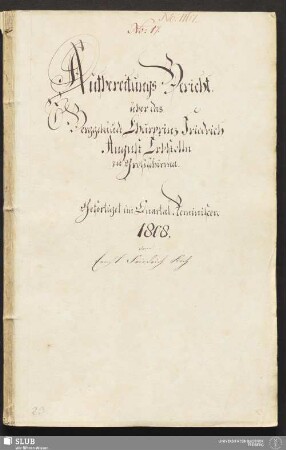 No. 1161.
No: 17.
Aufbereitungs Bericht
über das
Berggebäude Churprinz Friedrich
August Erbstolln
zu Großschirma
Gefertiget im Quartal Reminiscere
1808.
Ernst Friedrich
SLUB
Wir führen Wissen.